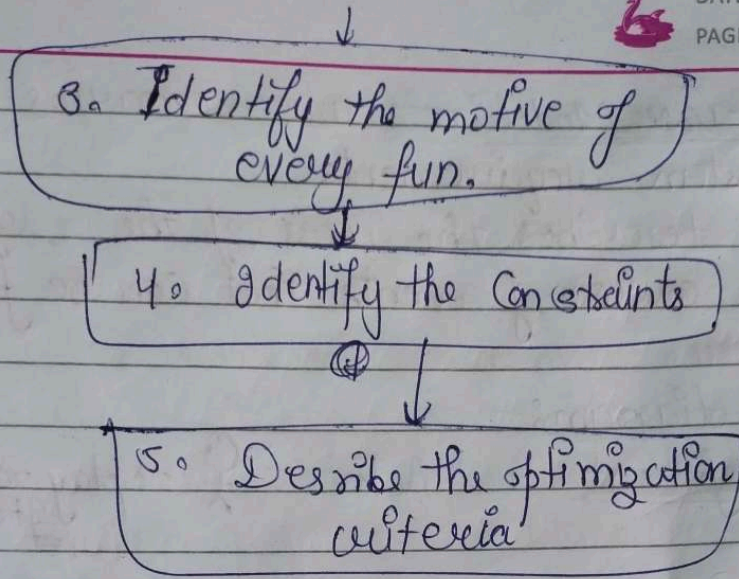 PAGE
3. Identify the motive of
every fun.
4. Identify the Constraints
5. Desribe the optimization
criteria